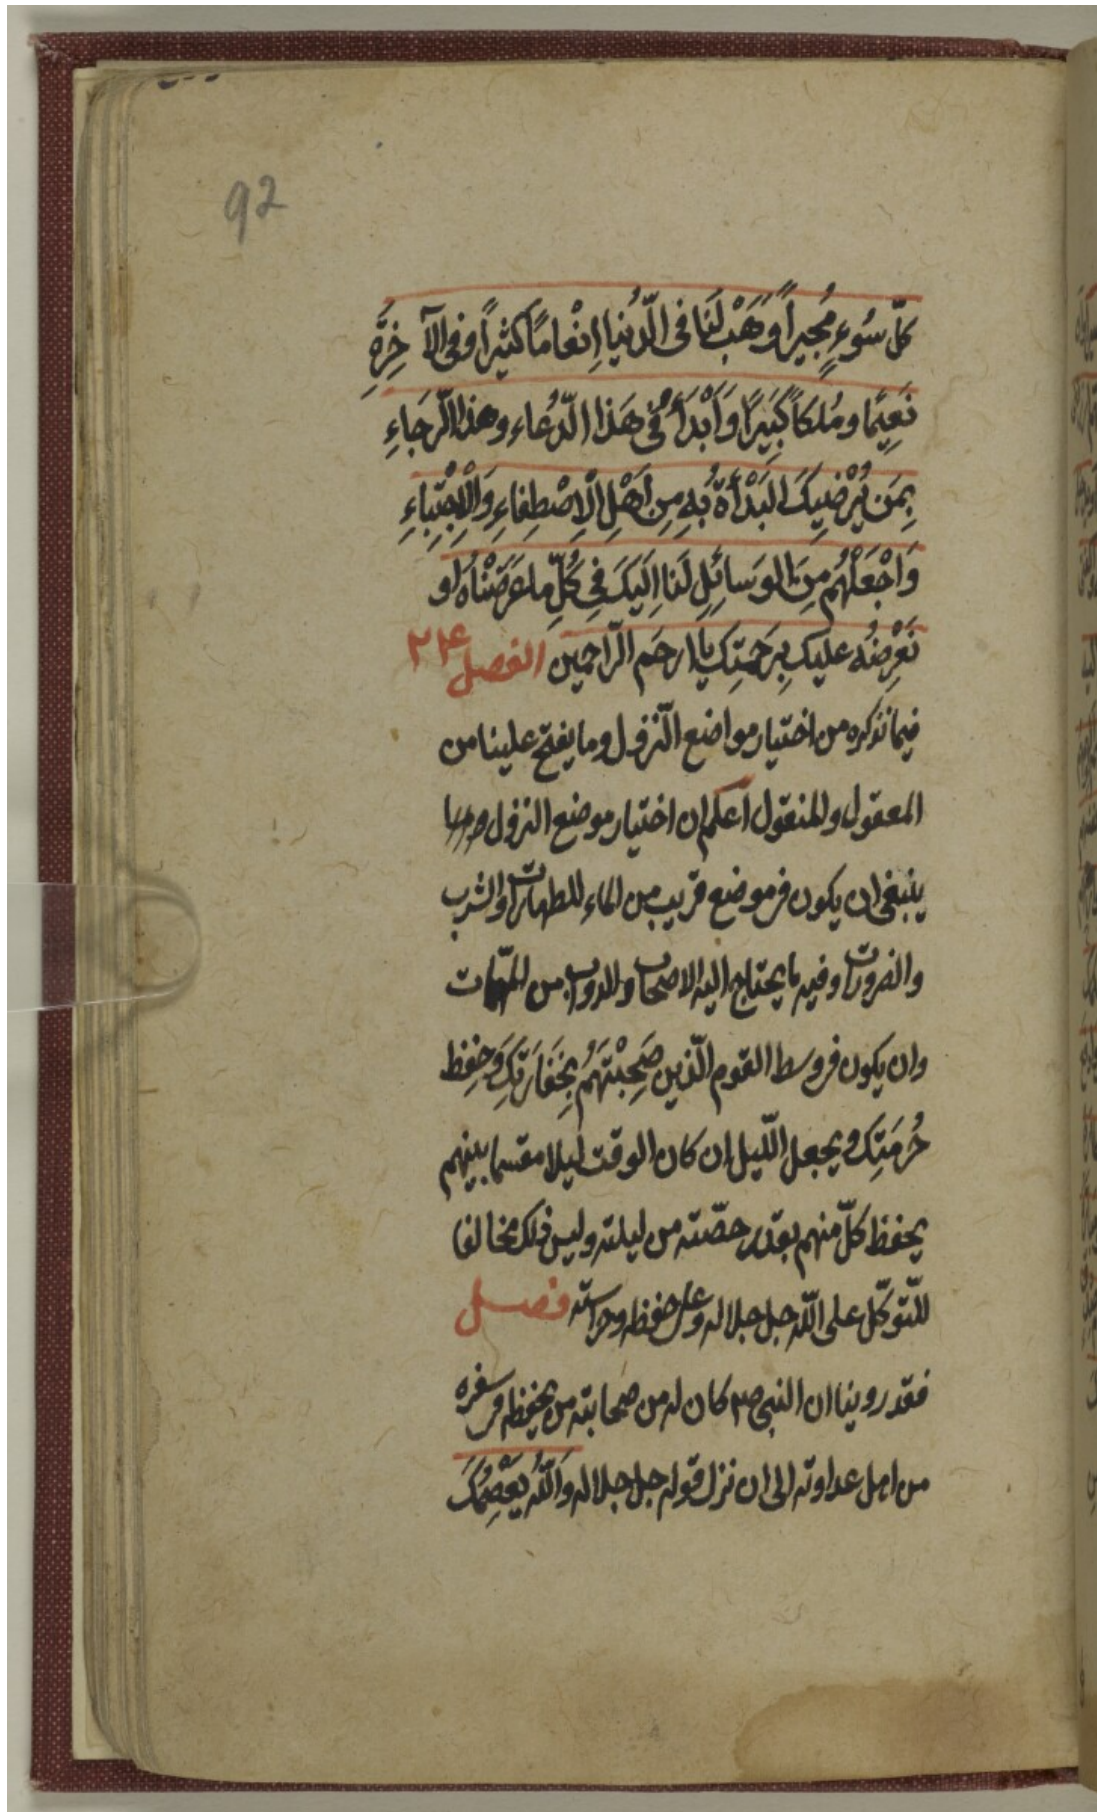 92
كلّ سُوءٍ مُجيراً وَهَبْ لَنَا فى الدّنيا اِنْعاماً كثيراً وفى الآخِرَةِ
نَعِيمًا ومُلكاً كَبِيرًا وَأَبْدَأُ فى هَذا الدّعُاء وهذا الرّجَاءِ
بِمَن يُرْضيكَ البَدْأَةُ بِهِ مِن اَهْلِ الْاِصْطِفاءِ وَالْاِجْتِباءِ
وَاجْعَلْهُم مِنَ الوَسائِلِ لَنا اِلَيكَ فى كُلِّ ما عَرَضْناهُ او
نَعْرِضُه عليك بِرَحمَتِكَ يا ارحَم الرّاحمين الفصل ٢٤
فيما نذكره من اختيار مواضع النّزول وما يفتح علينا من
المعقول والمنقول اعلم ان اختيار موضع النزول
ينبغى ان يكون فى موضع قريب من الماء للطهارات والشرب
والضرورات وفيه ما يحتاج اليه الاصحاب والدواب من المهمّات
وان يكون فى وسط القوم الّذين صَحِبْتَهُم بِخَفارَتِكَ وَحِفظ
حُرمَتِك ويجعل اللّيل ان كان الوقت ليلا مقسما بينهم
يحفظ كلّ منهم بقدر حصّته من ليلته وليس ذلك مخالفا
للتّوكّل على اللّه جل جلاله وعلى حفظه وحراسته فصل
فقد روينا ان النبى ص كان له من صحابته من يحفظه فى سفره
من اهل عداوته الى ان نزل قوله جل جلاله وَاللّهُ يَعْصِمُكَ